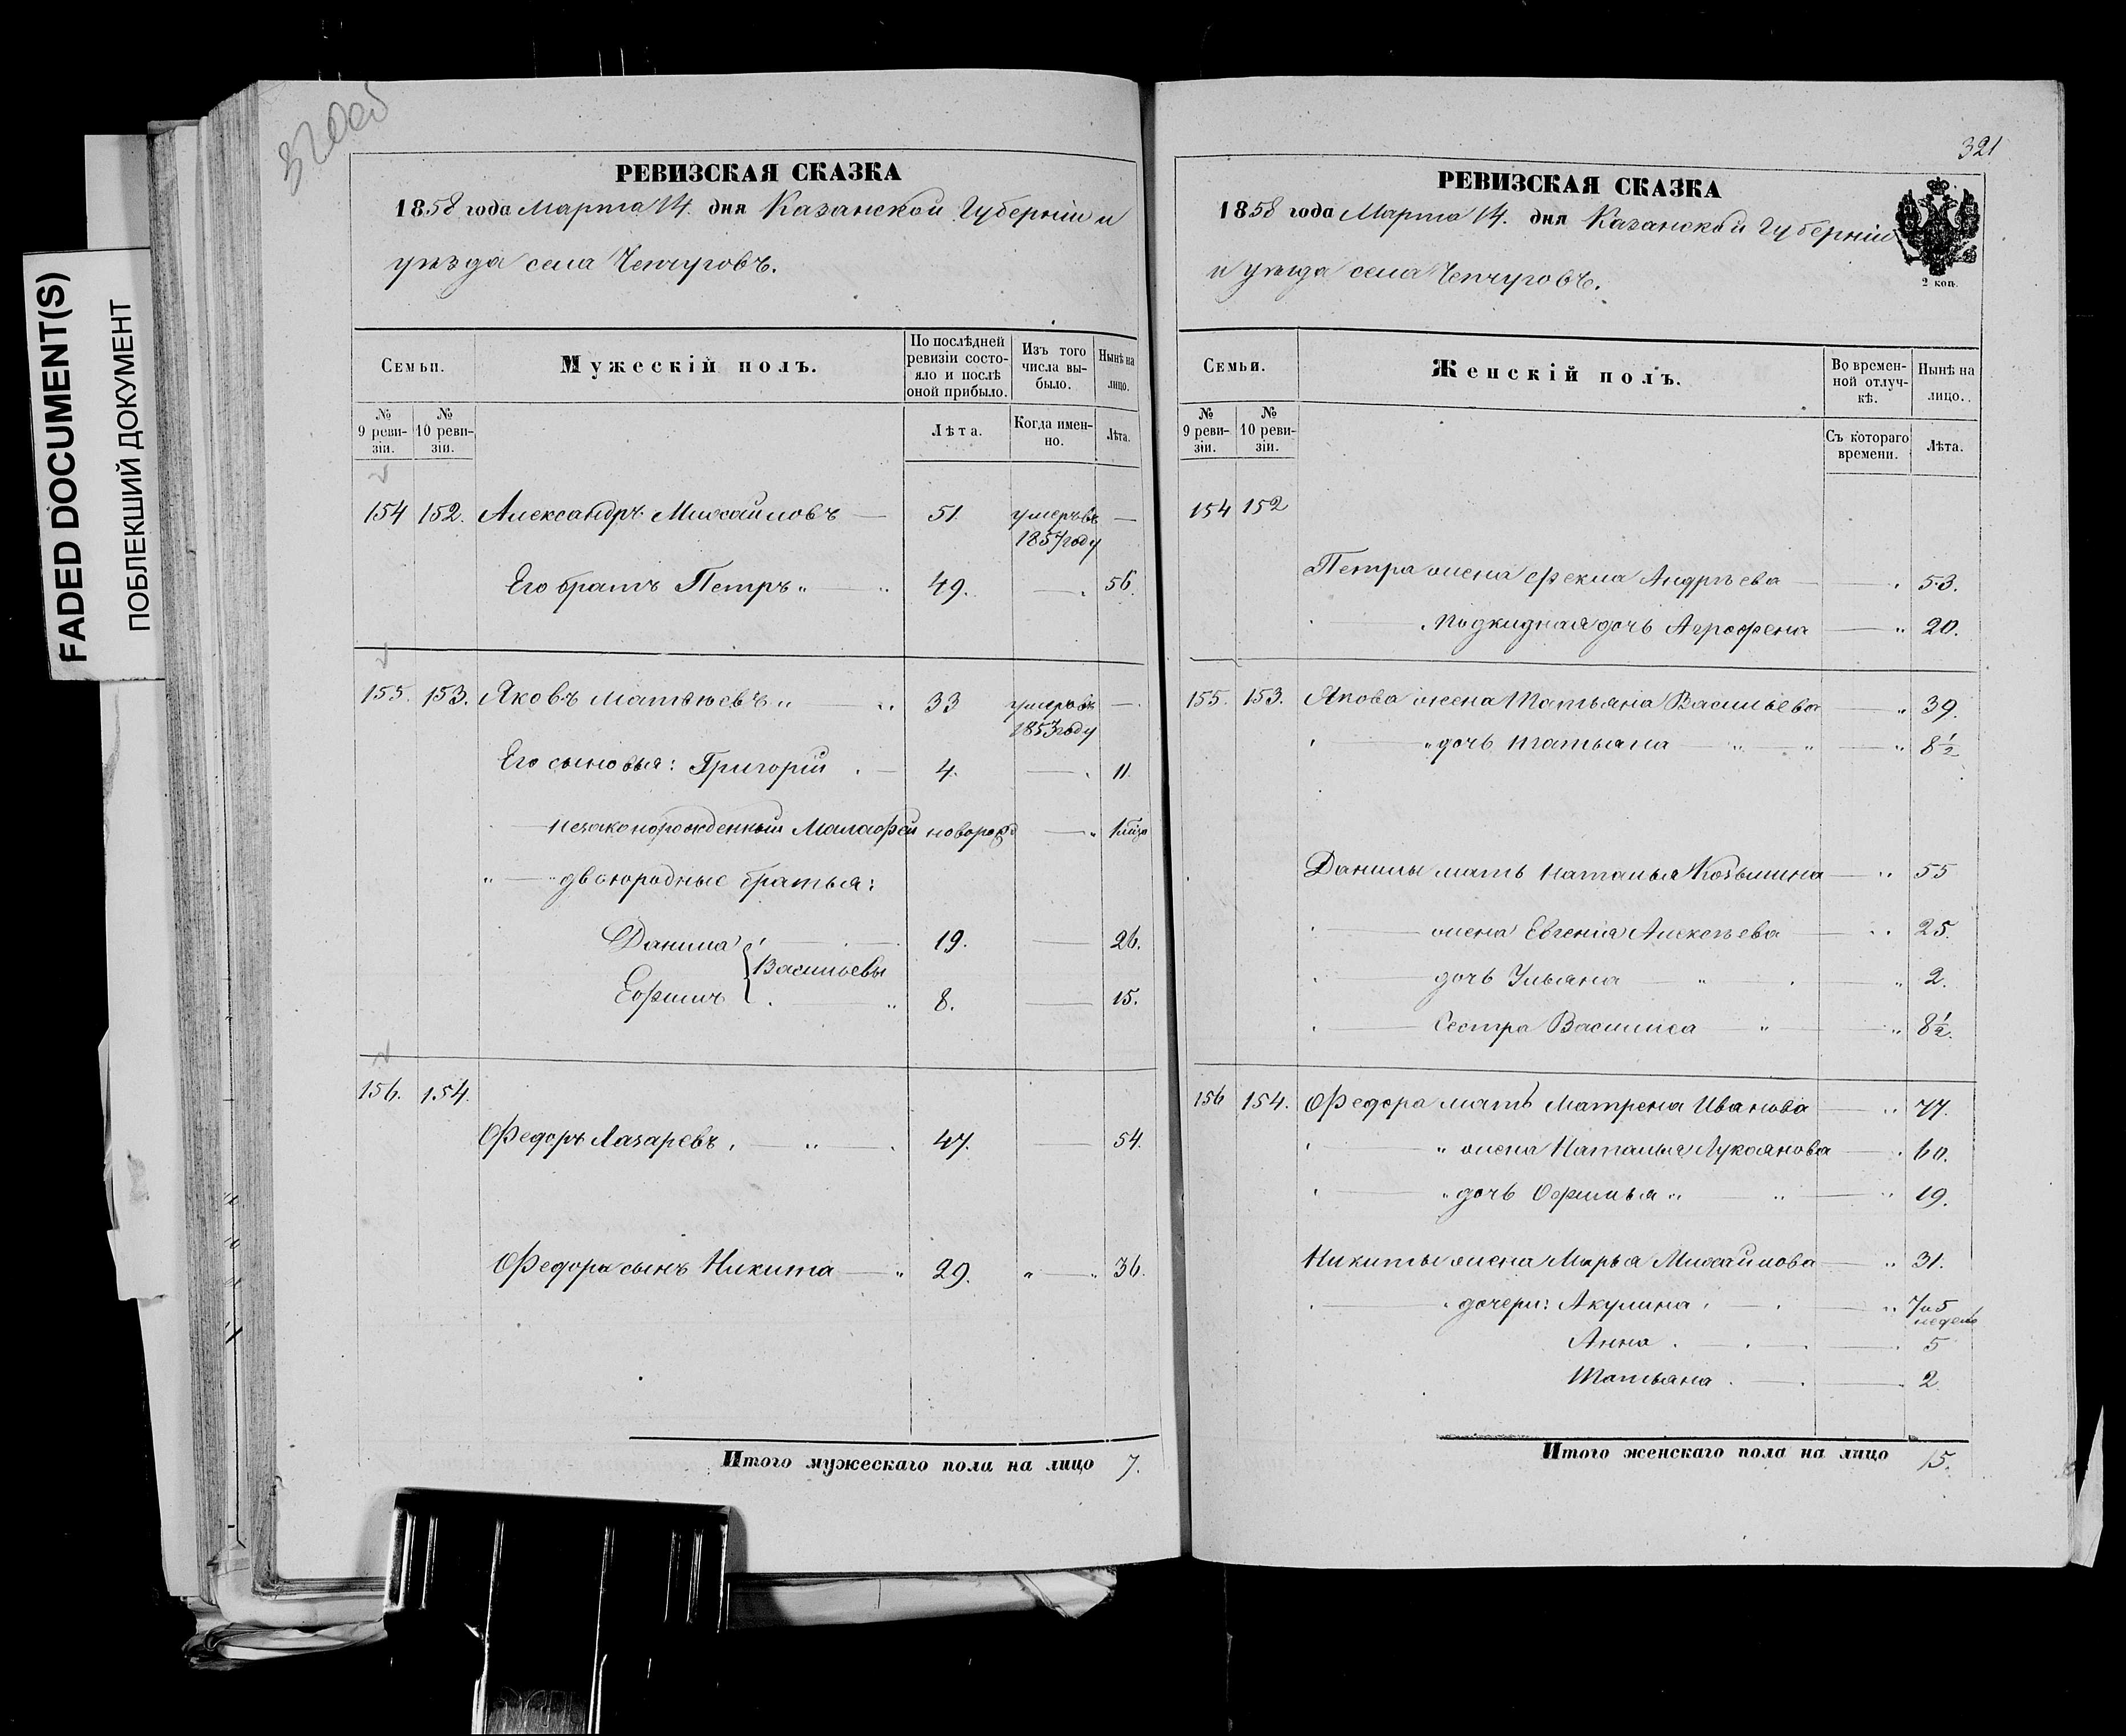 FADED DOCUMENT(S)
ПОБЛЕКШИЙ ДОКУМЕНТ
320об
РЕВИЗСКАЯ СКАЗКА
1858 года Марта 14. дня Казанской Губерніи и
уѣзда села Чепчуговъ.
Семьи.
Мужескій полъ.
По послѣдней ревизіи состояло и послѣ оной прибыло.
Изъ того числа выбыло.
Нынѣ на лицо.
№ 9 ревизіи.
№ 10 ревизіи.
Лѣта.
Когда именно.
Лѣта.
154 152. Александръ Михайловъ — 51 умеръ въ 1857 году —
Его братъ Петръ „ — „ 49. — . 56.
155. 153. Яковъ Матвѣевъ „ „ 33 умеръ въ 1853 году —
Его сыновья: Григорій . — 4. — . 11.
незаконорожденный Малафей новорож — „
„ — двоюродные братья:
Данила — 19. — 26.
Васильевы
Ефимъ . „ 8. — 15.
156. 154.
Федоръ Лазаревъ . — „ — . 47. — 54.
Федора сынъ Никита — „ 29. „ — „ 36.
Итого мужескаго пола на лицо 7.
321
РЕВИЗСКАЯ СКАЗКА
1858 года Марта 14. дня Казанской Губерніи
и уѣзда села Чепчуговъ.
2 коп.
Семьи.
Женскій полъ.
Во временной отлучкѣ.
Нынѣ на лицо.
№ 9 ревизіи.
№ 10 ревизіи.
Съ котораго времени.
Лѣта.
154 152
Петра жена Фекла Андрѣева — . 53.
подкидная дочь Аграфена — „ 20.
155. 153. Якова жена Татьяна Васильева — „ 39.
„ дочь Татьяна — „ — „ — „ 8½
Данилы мать Наталья Козьмина — „ 55
жена Евгенія Алексѣева — . . 25.
дочь Ульяна — „ — . — „ 2.
Сестра Василиса — „ — „ 8½.
156 154. Федора мать Матрена Иванова — „ 77.
„ жена Наталья Лукоянова — . 60.
„ дочь Офимья „ „ — „ 19.
Никиты жена Марья Михайлова — „ 31.
. дочери: Акулина . — . — „ 7 и 5 недель
Анна . — . — . — . 5
Татьяна . — . — . 2
Итого женскаго пола на лицо 15.